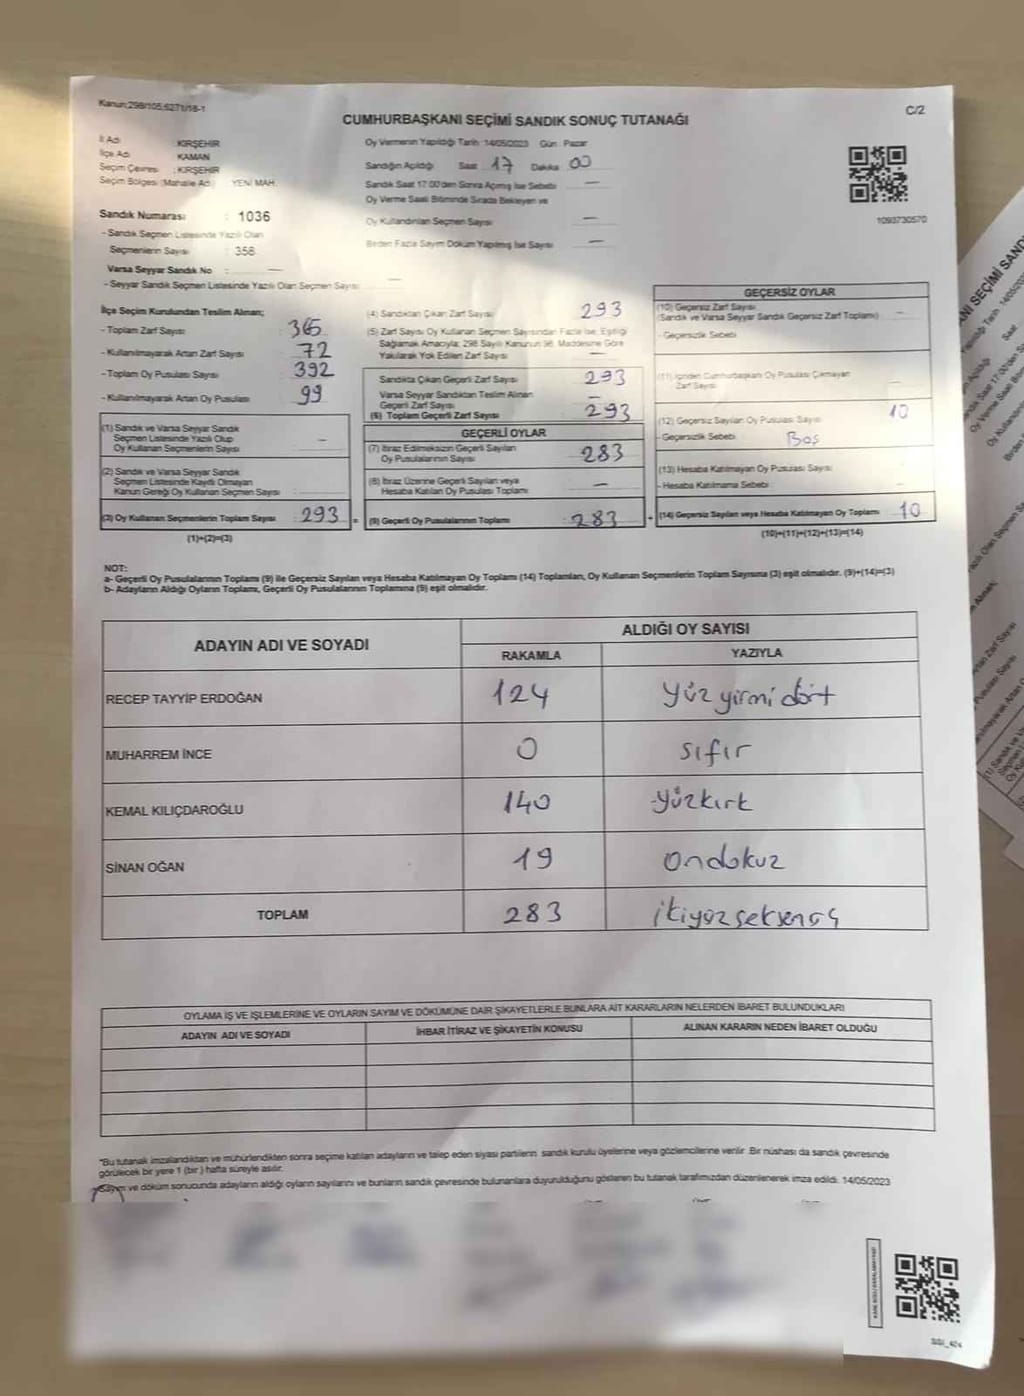 Kanun;298/105,6271/18-1
C/2
CUMHURBAŞKANI SEÇİMİ SANDIK SONUÇ TUTANAĞI
İl Adı : KIRŞEHİR
İlçe Adı : KAMAN
Seçim Çevresi : KIRŞEHİR
Seçim Bölgesi (Mahalle Adı) : YENİ MAH.
Sandık Numarası : 1036
- Sandık Seçmen Listesinde Yazılı Olan
Seçmenlerin Sayısı : 358
Varsa Seyyar Sandık No : —
- Seyyar Sandık Seçmen Listesinde Yazılı Olan Seçmen Sayısı —
Oy Vermenin Yapıldığı Tarih 14/05/2023 Gün Pazar
Sandığın Açıldığı Saat 17 Dakika 00
Sandık Saat 17:00'den Sonra Açılmış İse Sebebi —
Oy Verme Saati Bitiminde Sırada Bekleyen ve
Oy Kullandırılan Seçmen Sayısı —
Birden Fazla Sayım Döküm Yapılmış İse Sayısı —
1093730570
İlçe Seçim Kurulundan Teslim Alınan;
- Toplam Zarf Sayısı : 365
- Kullanılmayarak Artan Zarf Sayısı : 72
- Toplam Oy Pusulası Sayısı : 392
- Kullanılmayarak Artan Oy Pusulası : 99
(1) Sandık ve Varsa Seyyar Sandık
Seçmen Listesinde Yazılı Olup
Oy Kullanan Seçmenlerin Sayısı : —
(2) Sandık ve Varsa Seyyar Sandık
Seçmen Listesinde Kaydı Olmayan
Kanun Gereği Oy Kullanan Seçmen Sayısı :
(3) Oy Kullanan Seçmenlerin Toplam Sayısı : 293
(1)+(2)=(3)
(4) Sandıktan Çıkan Zarf Sayısı 293
(5) Zarf Sayısı Oy Kullanan Seçmen Sayısından Fazla İse, Eşitliği
Sağlamak Amacıyla; 298 Sayılı Kanunun 98. Maddesine Göre
Yakılarak Yok Edilen Zarf Sayısı —
Sandıkta Çıkan Geçerli Zarf Sayısı 293
Varsa Seyyar Sandıktan Teslim Alınan
Geçerli Zarf Sayısı —
(6) Toplam Geçerli Zarf Sayısı 293
GEÇERLİ OYLAR
(7) İtiraz Edilmeksizin Geçerli Sayılan
Oy Pusulalarının Sayısı 283
(8) İtiraz Üzerine Geçerli Sayılan veya
Hesaba Katılan Oy Pusulası Toplamı —
= (9) Geçerli Oy Pusulalarının Toplamı : 283
GEÇERSİZ OYLAR
(10) Geçersiz Zarf Sayısı
(Sandık ve Varsa Seyyar Sandık Geçersiz Zarf Toplamı) —
- Geçersizlik Sebebi
(11) İçinden Cumhurbaşkanı Oy Pusulası Çıkmayan
Zarf Sayısı —
(12) Geçersiz Sayılan Oy Pusulası Sayısı 10
- Geçersizlik Sebebi Boş
(13) Hesaba Katılmayan Oy Pusulası Sayısı —
- Hesaba Katılmama Sebebi
+ (14) Geçersiz Sayılan veya Hesaba Katılmayan Oy Toplamı 10
(10)+(11)+(12)+(13)=(14)
NOT:
a- Geçerli Oy Pusulalarının Toplamı (9) ile Geçersiz Sayılan veya Hesaba Katılmayan Oy Toplamı (14) Toplamları, Oy Kullanan Seçmenlerin Toplam Sayısına (3) eşit olmalıdır. (9)+(14)=(3)
b- Adayların Aldığı Oyların Toplamı, Geçerli Oy Pusulalarının Toplamına (9) eşit olmalıdır.
ADAYIN ADI VE SOYADI ALDIĞI OY SAYISI
RAKAMLA YAZIYLA
RECEP TAYYİP ERDOĞAN 124 yüzyirmidört
MUHARREM İNCE 0 sıfır
KEMAL KILIÇDAROĞLU 140 yüzkırk
SİNAN OĞAN 19 ondokuz
TOPLAM 283 ikiyüzseksenüç
OYLAMA İŞ VE İŞLEMLERİNE VE OYLARIN SAYIM VE DÖKÜMÜNE DAİR ŞİKAYETLERLE BUNLARA AİT KARARLARIN NELERDEN İBARET BULUNDUKLARI
ADAYIN ADI VE SOYADI İHBAR İTİRAZ VE ŞİKAYETİN KONUSU ALINAN KARARIN NEDEN İBARET OLDUĞU
*Bu tutanak imzalandıktan ve mühürlendikten sonra seçime katılan adayların ve talep eden siyasi partilerin sandık kurulu üyelerine veya gözlemcilerine verilir. Bir nüshası da sandık çevresinde
görülecek bir yere 1 (bir) hafta süreyle asılır.
Sayım ve döküm sonucunda adayların aldığı oyların sayılarını ve bunların sandık çevresinde bulunanlara duyurulduğunu gösteren bu tutanak tarafımızdan düzenlenerek imza edildi. 14/05/2023